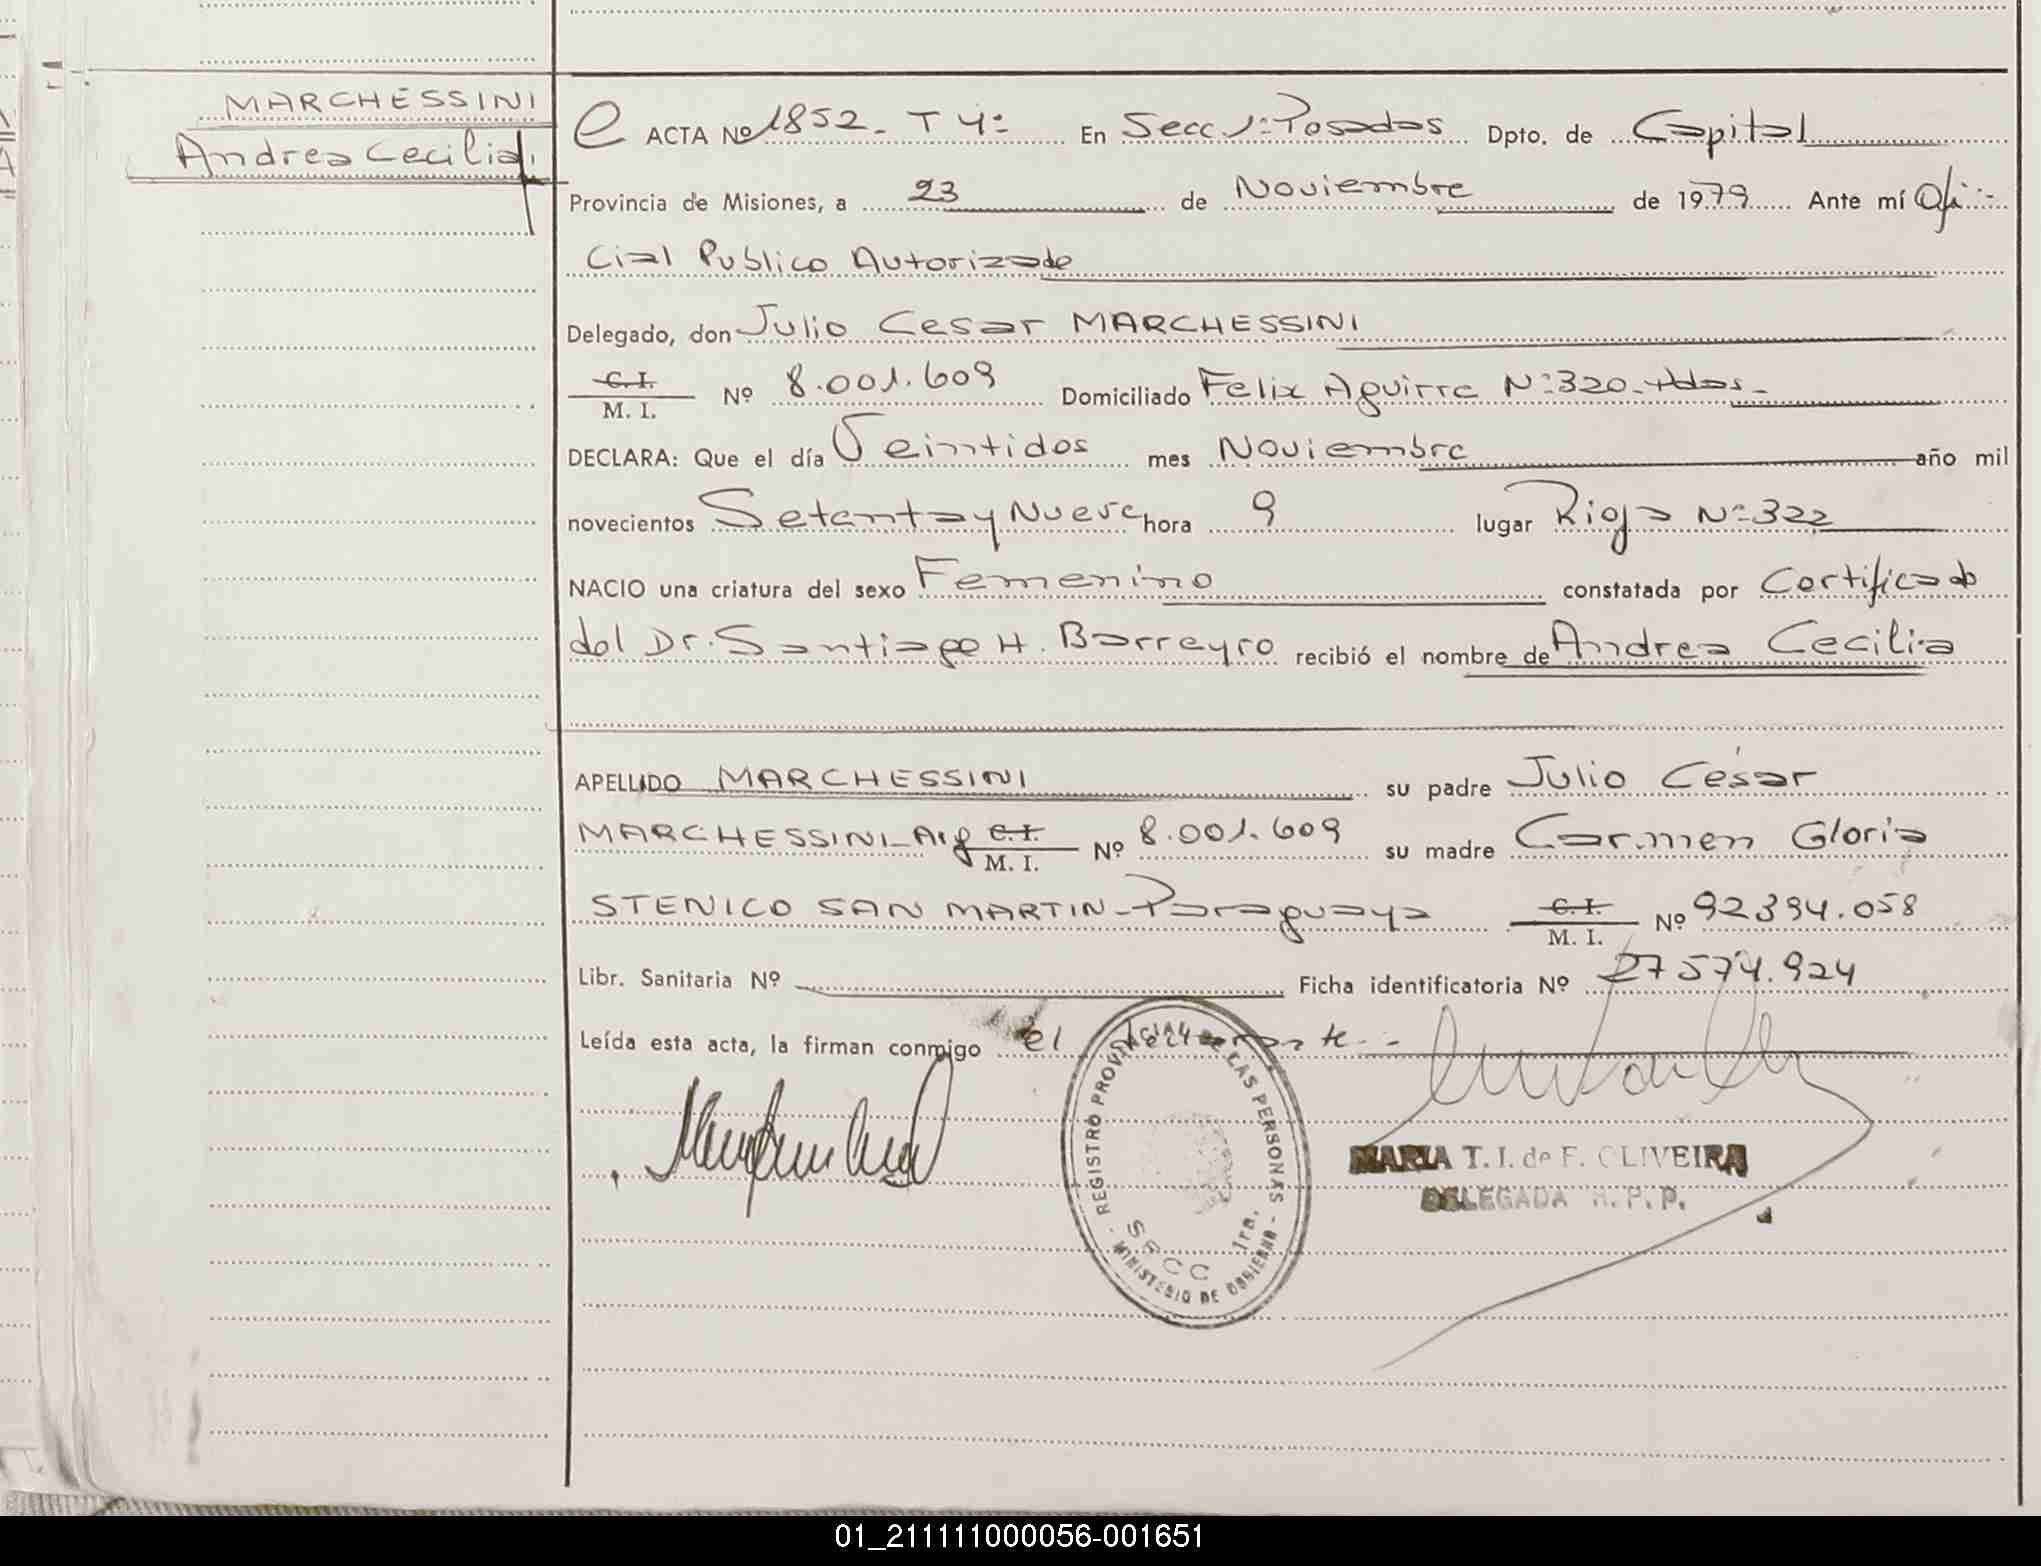 MARCHESSINI
Andrea Cecilia
ACTA Nº 1852. T 4º En Secc 1ª Posadas Dpto. de Capital
Provincia de Misiones, a 23 de Noviembre de 1979 Ante mí Ofi-
cial Publico Autorizado
Delegado, don Julio Cesar MARCHESSINI
C.I. M. I. Nº 8.001.609 Domiciliado Felix Aguirre Nº 320-Pdas-
DECLARA: Que el día Veintidos mes Noviembre año mil
novecientos Setenta y Nueve hora 9 lugar Rioja Nº 322
NACIO una criatura del sexo Femenino constatada por Certificado
del Dr. Santiago H. Barreyro recibió el nombre de Andrea Cecilia
APELLIDO MARCHESSINI su padre Julio César
MARCHESSINI-Arg C.I. M. I. Nº 8.001.609 su madre Carmen Gloria
STENICO SAN MARTIN-Paraguaya C.I. M. I. Nº 92394.058
Libr. Sanitaria Nº Ficha identificatoria Nº 27574.924
Leída esta acta, la firman conmigo el
REGISTRO PROVINCIAL DE LAS PERSONAS
SECC 1ra.
MINISTERIO DE GOBIERNO
MARIA T. I. de F. OLIVEIRA
DELEGADA R. P. P.
01_211111000056-001651